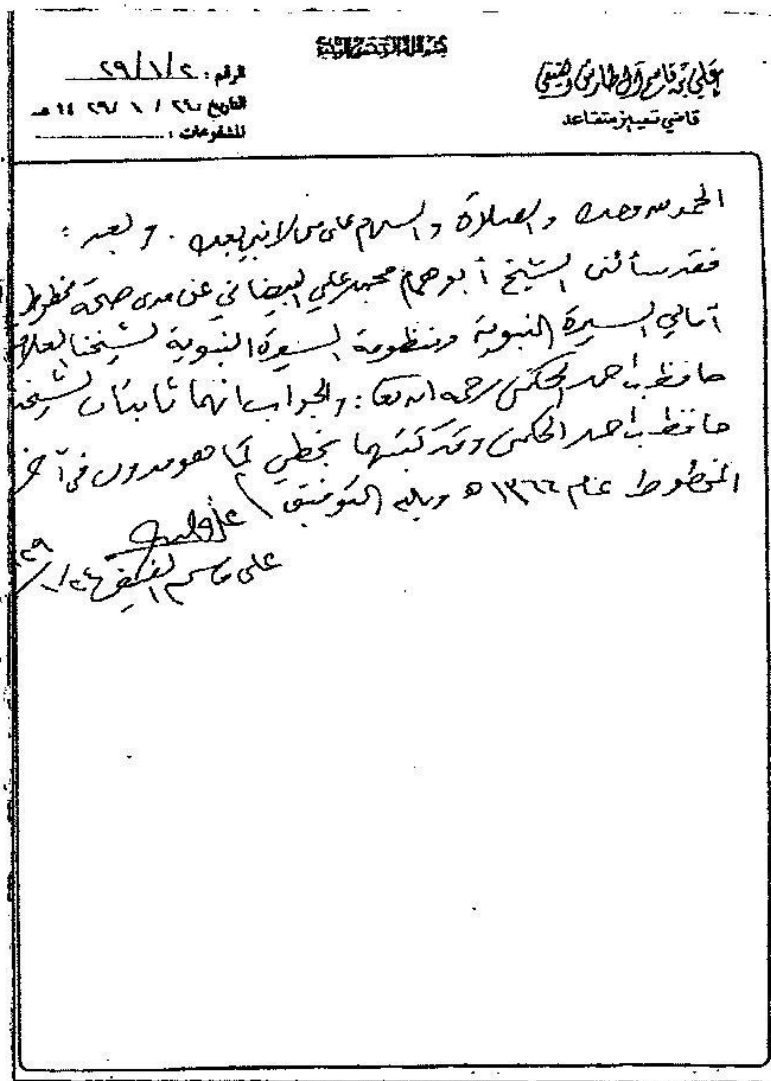 بسم الله الرحمن الرحيم
علي بن قاسم آل طارش الفيفي
قاضي تمييز متقاعد
الرقم : ٢٩/١/٢
التاريخ ٢٦ / ١ / ١٤٢٩ هـ
المشفوعات :
الحمد لله وحده والصلاة والسلام على من لا نبي بعده . وبعد :
فقد سألني الشيخ أبو همام محمد بن علي البيضاني عن مدى صحة مخطوط
أمالي السيرة النبوية ومنظومة السيرة النبوية لشيخنا العلا
حافظ بن احمد الحكمي رحمه الله تعا : والجواب انهما ثابتان لشيخنا
حافظ بن احمد الحكمي وقد كتبتهما بخطي كما هو مدون في آخر
المخطوط عام ١٣٦٦ ه وبالله التوفيق
علي قاسم الفيفي